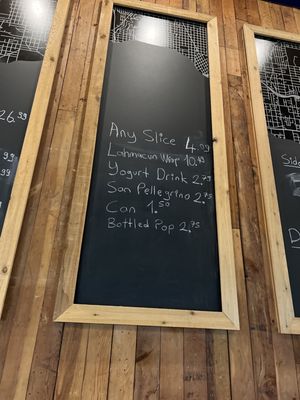 26.99
.99
.99
Any Slice 4.99
Lahmacun Wrap 10.45
Yogurt Drink 2.79
San Pellegrino 2.75
Can 1.50
Bottled Pop 2.75
Side
D